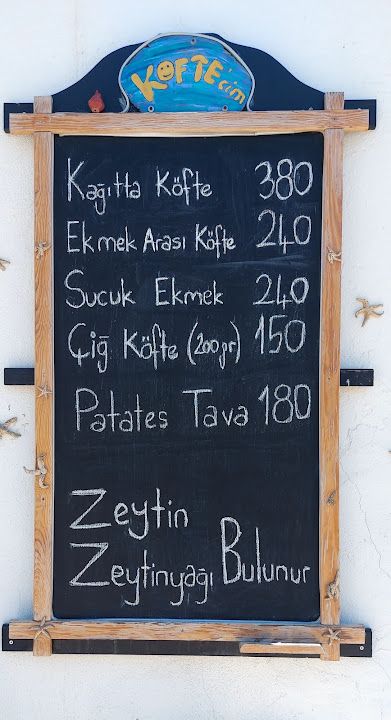 KOFTE'cim
Kağıtta Köfte 380
Ekmek Arası Köfte 240
Sucuk Ekmek 240
Çiğ Köfte (200gr) 150
Patates Tava 180
Zeytin
Zeytinyağı Bulunur